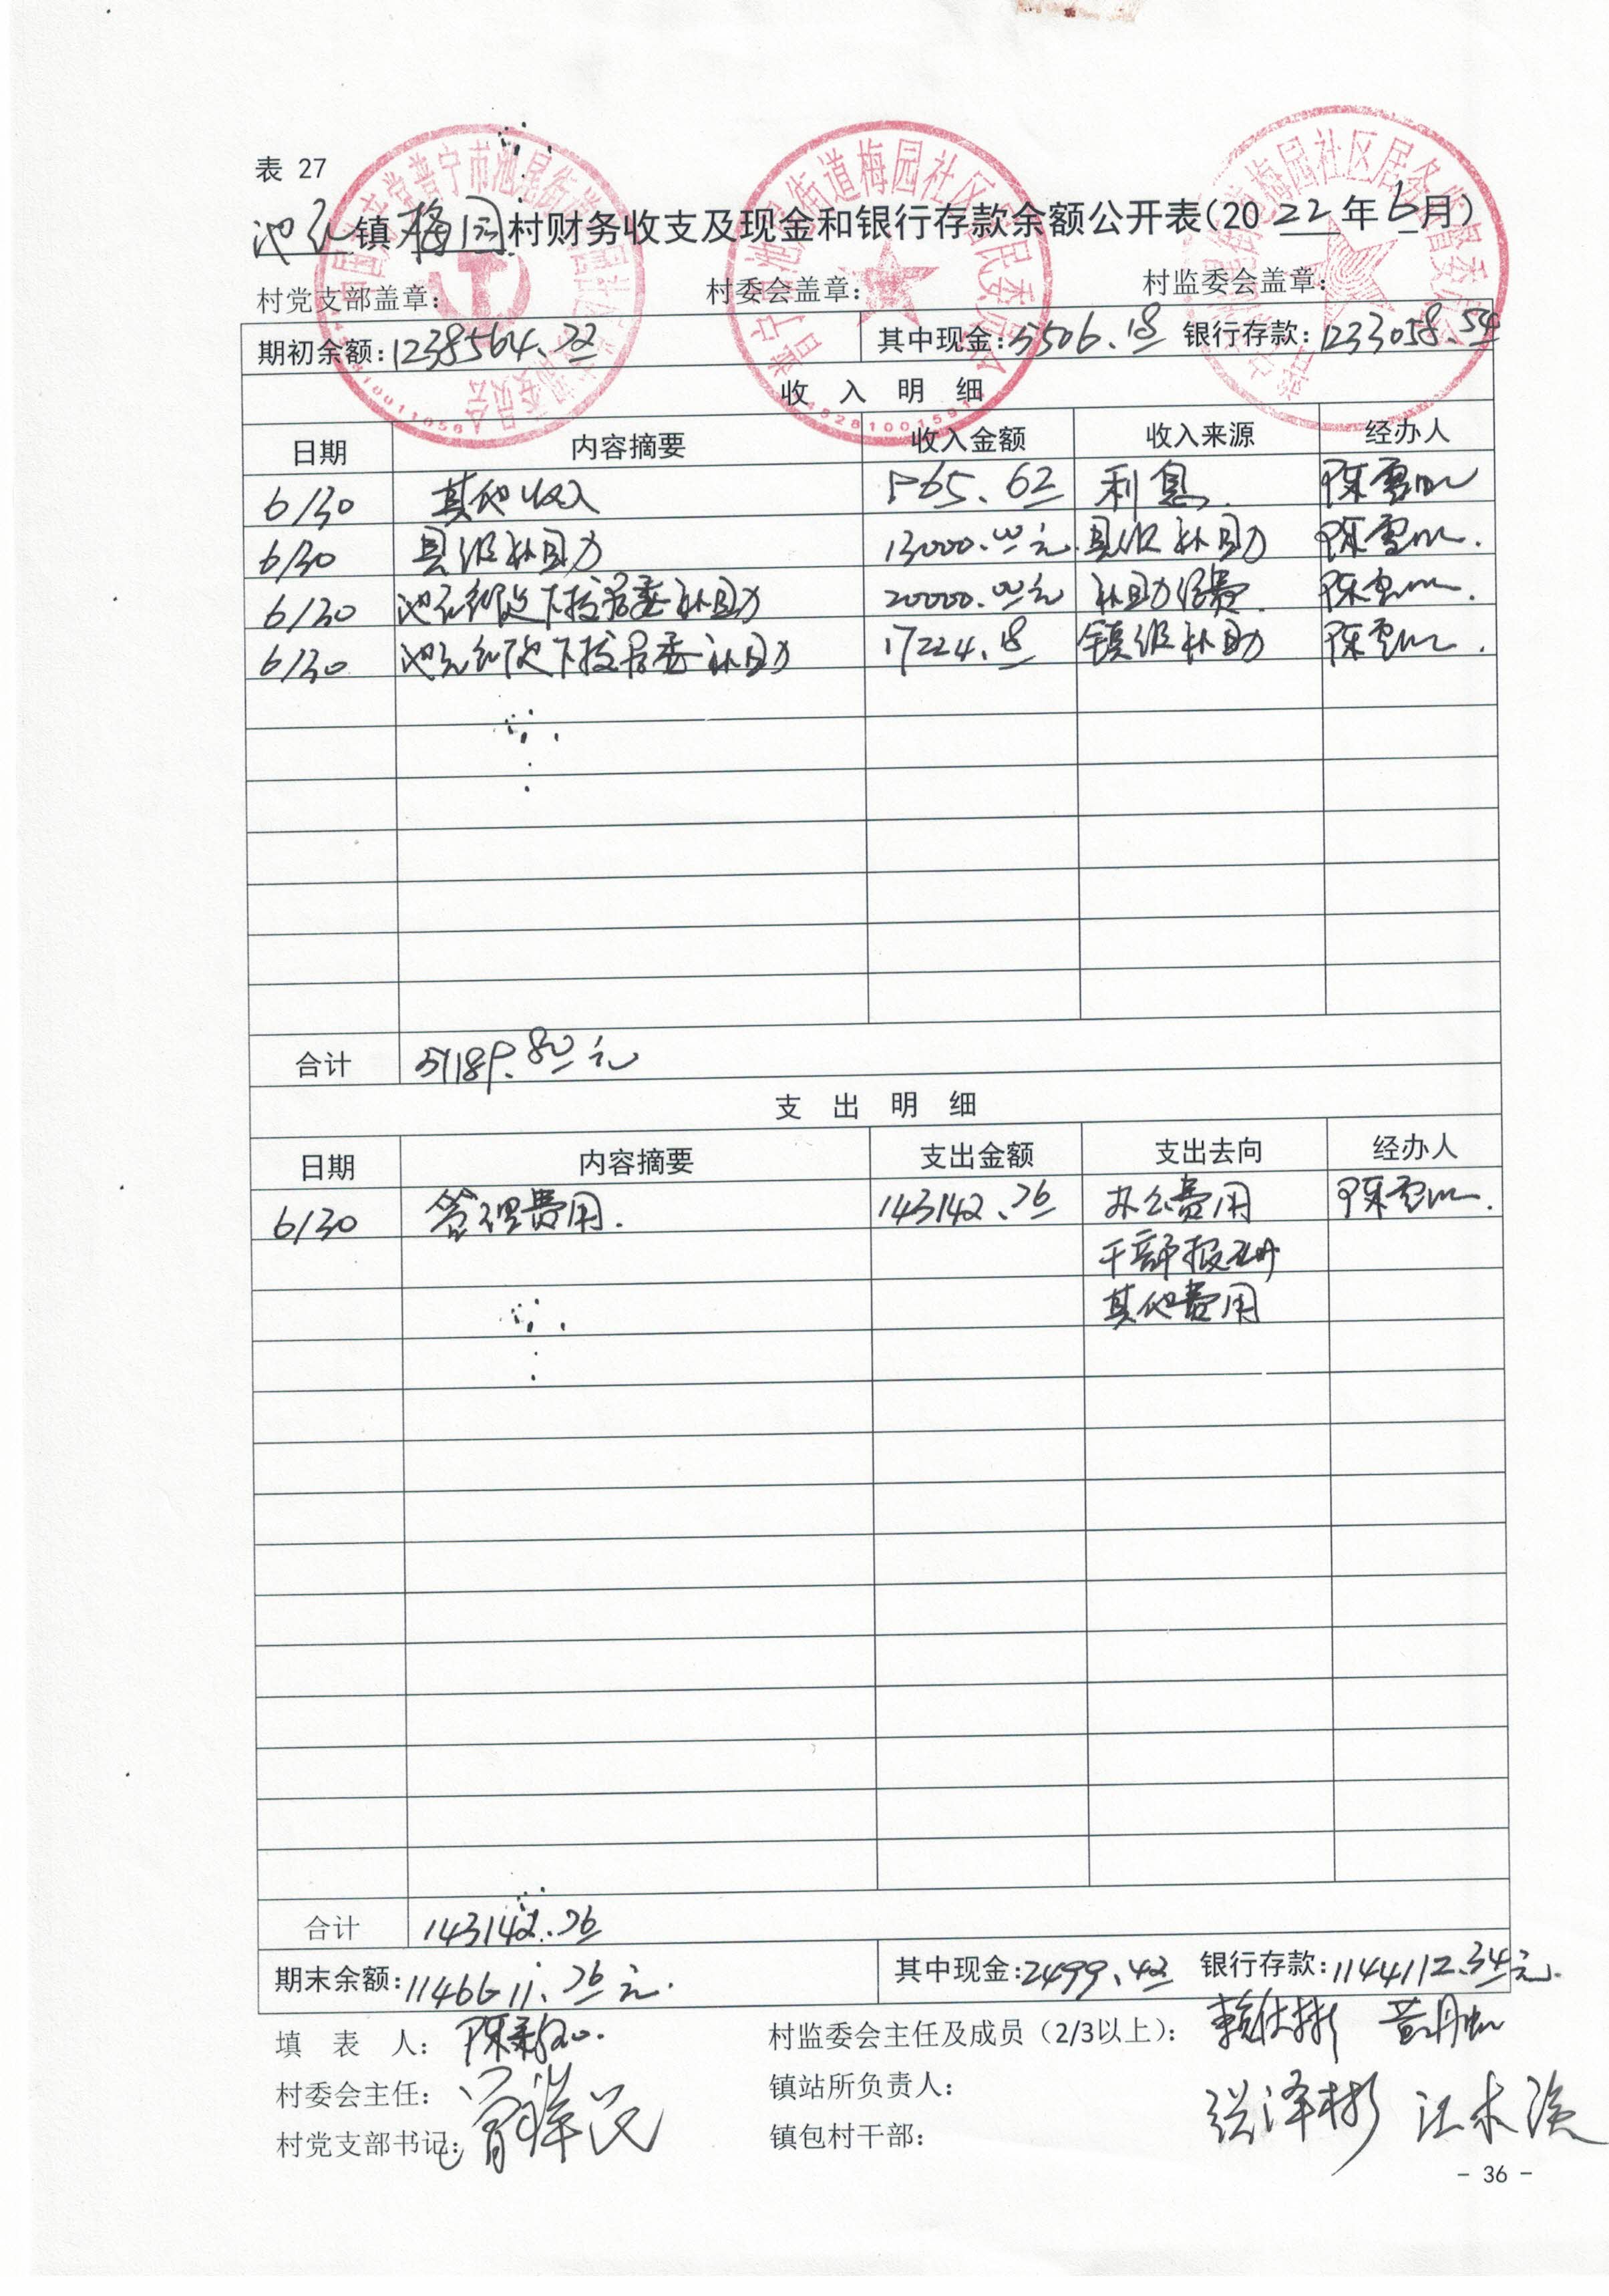 表 27
池尾镇梅园村财务收支及现金和银行存款余额公开表(2022年6月)
村党支部盖章: 村委会盖章: 村监委会盖章:
期初余额:1238564.72 其中现金:5506.18 银行存款:1233058.54
收 入 明 细
日期 内容摘要 收入金额 收入来源 经办人
6/30 其他收入 565.62 利息 陈
6/30 县级补助 13000.00元 县级补助 陈
6/30 池尾街道下拨居委补助 20000.00元 补助经费 陈
6/30 池尾街道下拨居委补助 17224.18 镇级补助 陈
合计 51189.80元
支 出 明 细
日期 内容摘要 支出金额 支出去向 经办人
6/30 管理费用 143142.76 办公费用 陈
干部报酬
其他费用
合计 143142.76
期末余额:1146611.76元 其中现金:2499.42 银行存款:1144112.34元
填 表 人: 陈 村监委会主任及成员(2/3以上):
村委会主任: 镇站所负责人: 张泽彬 江木
村党支部书记: 镇包村干部:
- 36 -